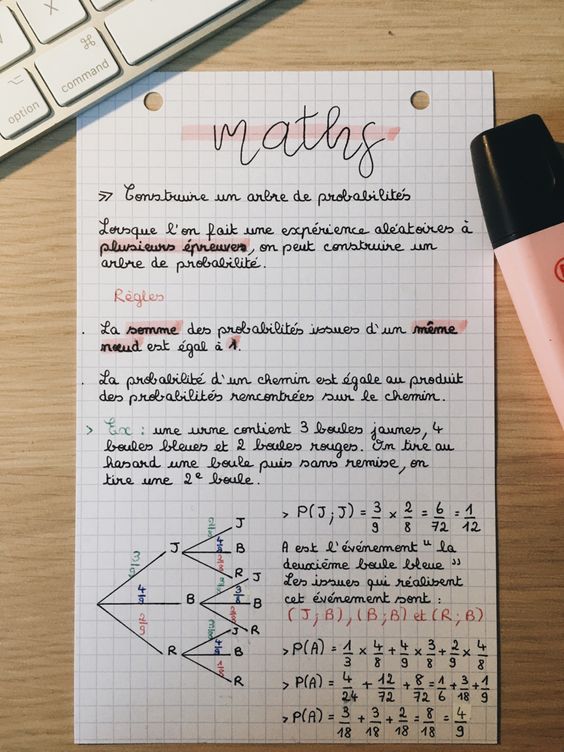 option
⌘
command
maths
» Construire un arbre de probabilités
Lorsque l'on fait une expérience aléatoires à
plusieurs épreuves, on peut construire un
arbre de probabilité.
Règles
. La somme des probabilités issues d'un même
nœud est égal à 1.
. La probabilité d'un chemin est égale au produit
des probabilités rencontrées sur le chemin.
> Ex : une urne contient 3 boules jaunes, 4
boules bleues et 2 boules rouges. On tire au
hasard une boule puis sans remise, on
tire une 2e boule.
3/9 J 2/8 J
4/8 B
2/8 R
4/9 B 3/8 J
3/8 B
2/8 R
2/9 R 3/8 J
4/8 B
R
> P(J;J) = 3/9 × 2/8 = 6/72 = 1/12
A est l'événement " la
deuxième boule bleue "
Les issues qui réalisent
cet événement sont :
(J;B), (B;B) et (R;B)
> P(A) = 1/3 × 4/8 + 4/9 × 3/8 + 2/9 × 4/8
> P(A) = 4/24 + 12/72 + 8/72 = 1/6 + 3/18 + 1/9
> P(A) = 3/18 + 3/18 + 2/18 = 8/18 = 4/9